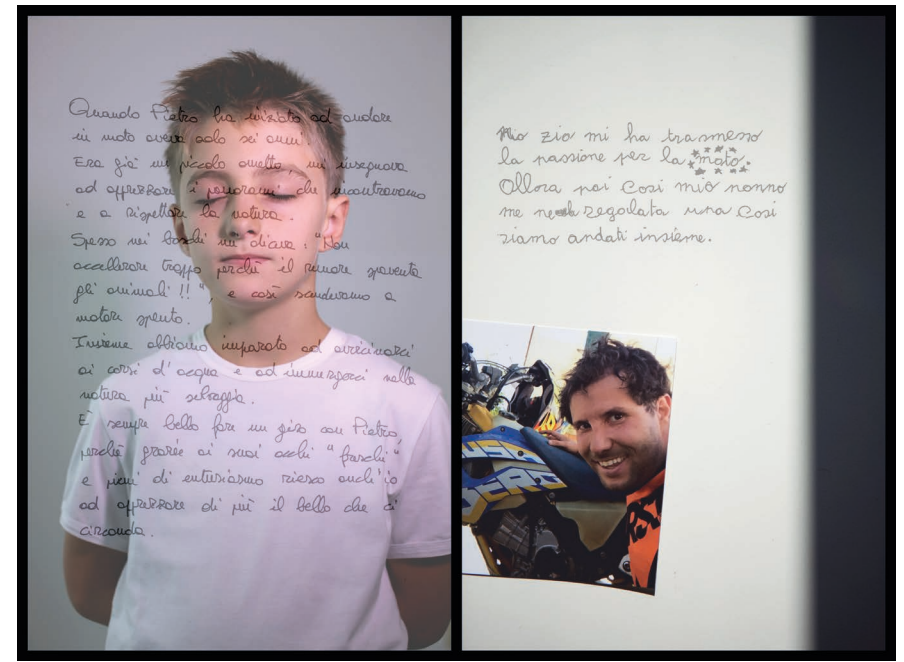 Quando Pietro ha iniziato ad andare
in moto aveva solo sei anni.
Era già un piccolo ometto mi insegnava
ad apprezzare i panorami che incontravamo
e a rispettare la natura.
Spesso nei boschi mi diceva: "Non
accellerare troppo perchè il rumore spaventa
gli animali!!", e così scendevamo a
motore spento.
Insieme abbiamo imparato ad avvicinarci
ai corsi d'acqua e ad immergerci nella
natura più selvaggia.
È sempre bello fare un giro con Pietro,
perchè grazie ai suoi occhi "freschi"
e pieni di entusiasmo riesco anch'io
ad apprezzare di più il bello che ci
circonda.
Mio zio mi ha trasmesso
la passione per la moto.
Allora poi così mio nonno
me regolata una così
siamo andati insieme.